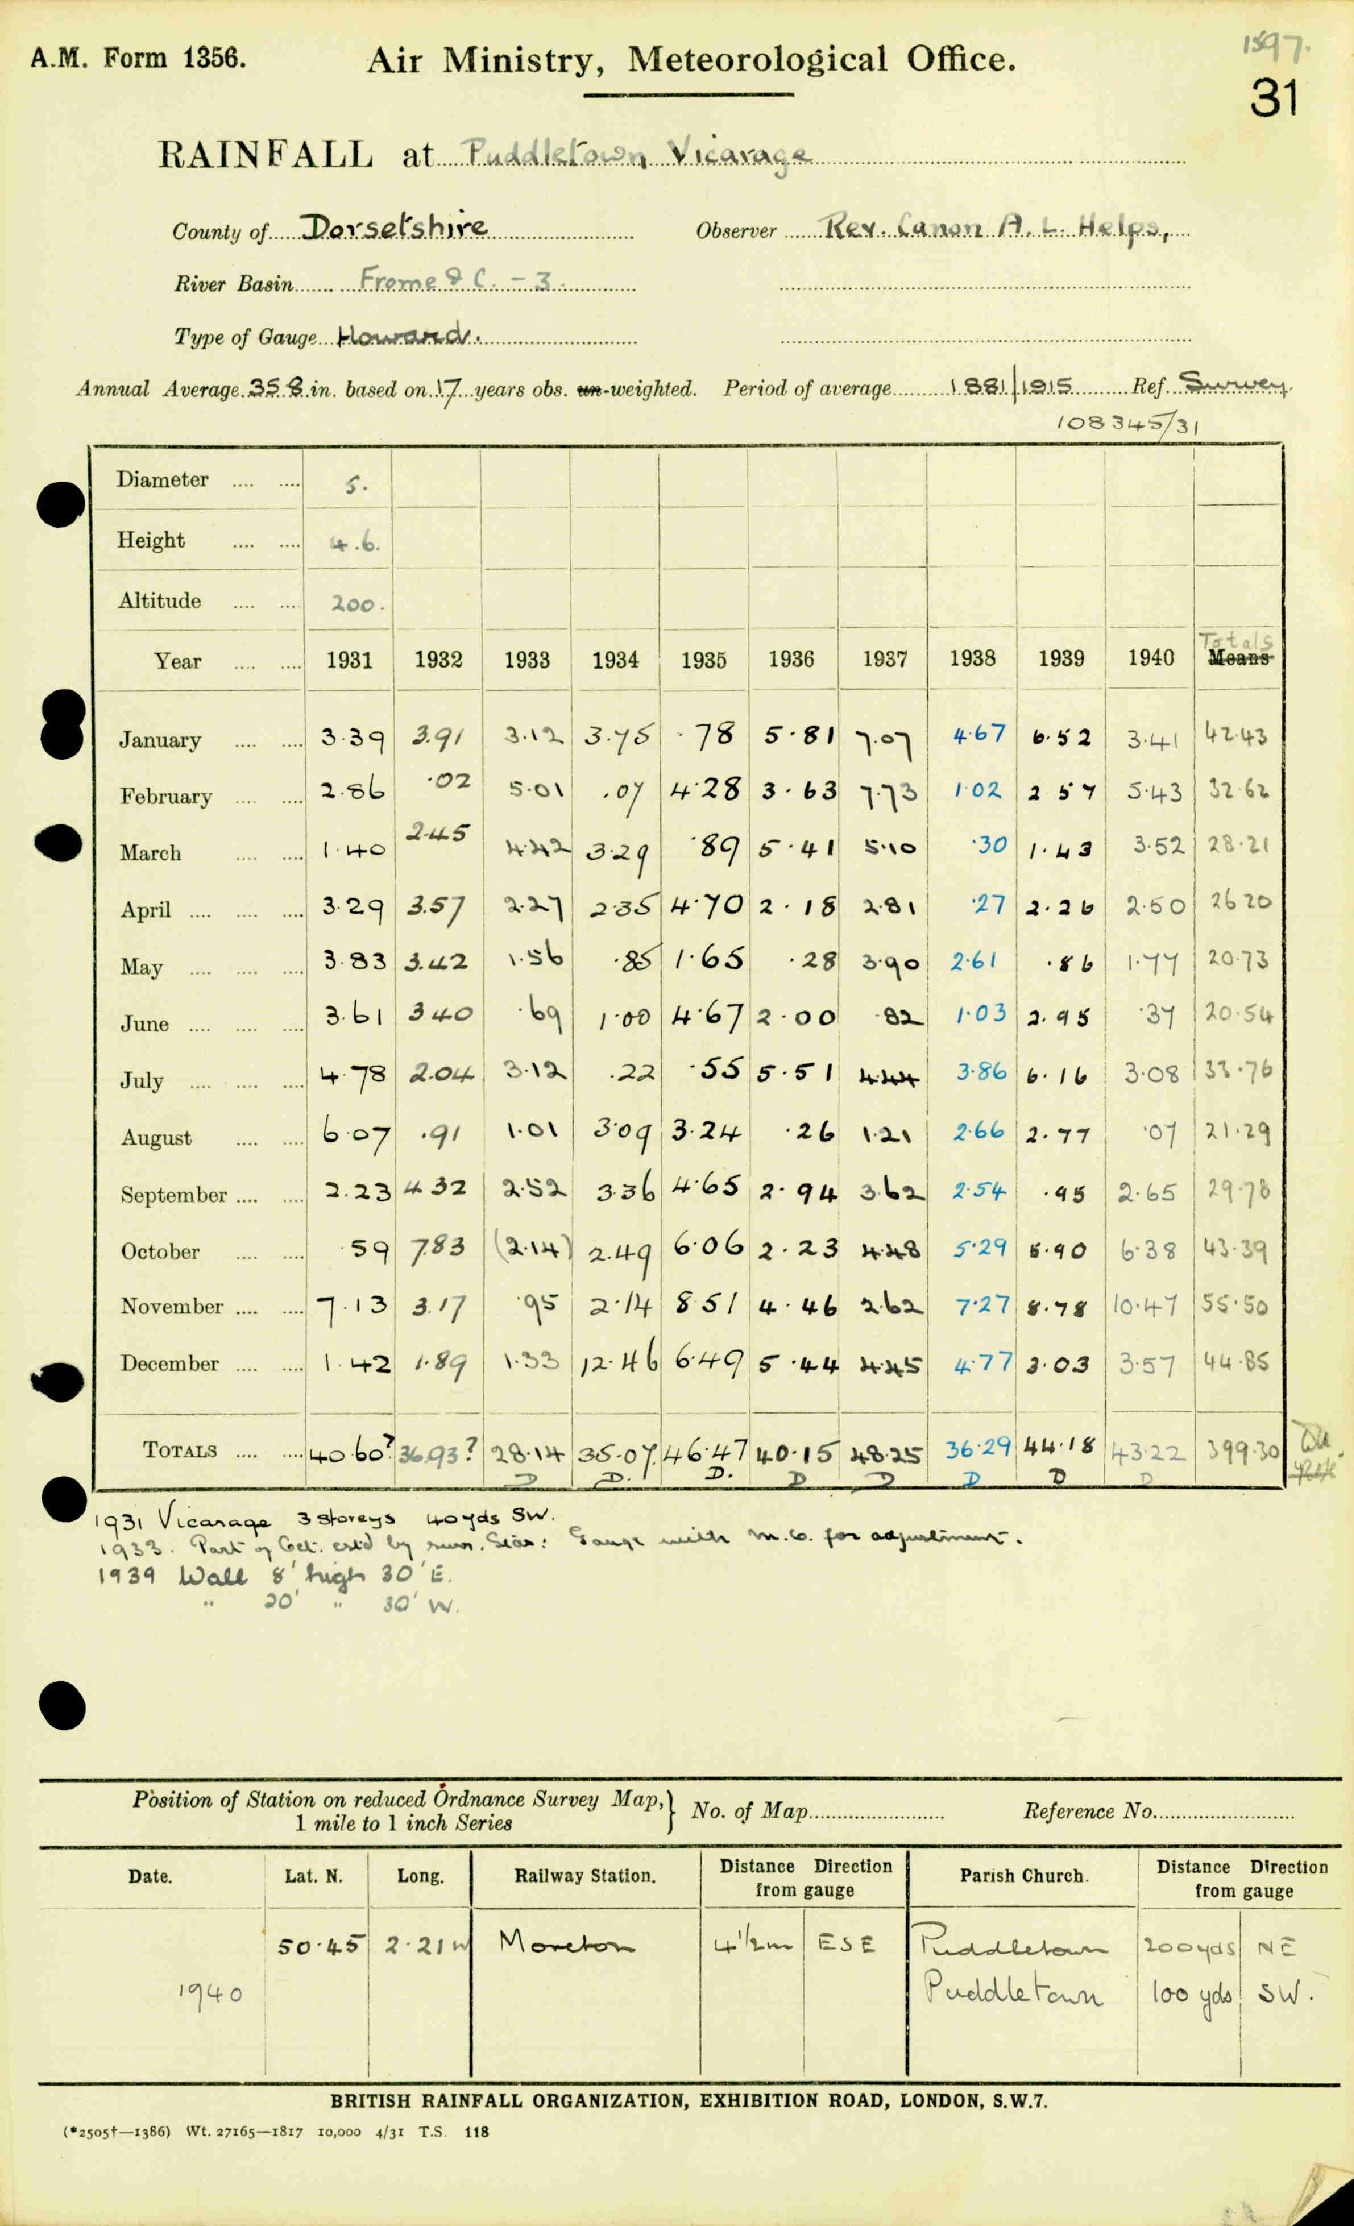 1597.
A.M. Form 1356. Air Ministry, Meteorological Office.
31
RAINFALL at Puddletown Vicarage
County of Dorsetshire Observer Rev. Canon A. L. Helps,
River Basin Frome & C. - 3.
Type of Gauge Howard.
Annual Average 35.8 in. based on 17 years obs. un-weighted. Period of average 1881/1915 Ref. Survey.
108345/31
Diameter .... .... 5.
Height .... .... 4.6.
Altitude .... .... 200.
Totals
Year .... .... 1931 1932 1933 1934 1935 1936 1937 1938 1939 1940 Means
January .... .... 3.39 3.91 3.12 3.75 .78 5.81 7.07 4.67 6.52 3.41 42.43
February .... .... 2.86 .02 5.01 .07 4.28 3.63 7.73 1.02 2 57 5.43 32.62
March .... .... 1.40 2.45 4.42 3.29 .89 5.41 5.10 .30 1.43 3.52 28.21
April .... .... .... 3.29 3.57 2.27 2.35 4.70 2.18 2.81 .27 2.26 2.50 26 20
May .... .... .... 3.83 3.42 1.56 .85 1.65 .28 3.90 2.61 .86 1.77 20.73
June .... .... .... 3.61 3 40 .69 1.00 4.67 2.00 .82 1.03 2.95 .37 20.54
July .... .... .... 4.78 2.04 3.12 .22 .55 5.51 4.44 3.86 6.16 3.08 33.76
August .... .... 6.07 .91 1.01 3.09 3.24 .26 1.21 2.66 2.77 .07 21.29
September .... .... 2.23 4 32 2.52 3.36 4.65 2.94 3.62 2.54 .95 2.65 29.78
October .... .... .59 7.83 (2.14) 2.49 6.06 2.23 4.48 5.29 5.90 6.38 43.39
November .... .... 7.13 3.17 .95 2.14 8.51 4.46 2.62 7.27 8.78 10.47 55.50
December .... .... 1.42 1.89 1.33 12.46 6.49 5.44 4.45 4.77 3.03 3.57 44.85
TOTALS .... .... 40.60? 36.93? 28.14 35.07 46.47 40.15 48.25 36.29 44.18 43.22 399.30
D D. D. D D D D D
1931 Vicarage 3 storeys 40yds SW.
1933. Part of Oct. est'd by surr. Stas: Gauge with M.O. for adjustment.
1939 Wall 8' high 30' E.
" 20' " 30' W.
Position of Station on reduced Ordnance Survey Map,} No. of Map Reference No.
1 mile to 1 inch Series
Date. Lat. N. Long. Railway Station. Distance Direction from gauge Parish Church. Distance Direction from gauge
50.45 2.21 W Moreton 4½m ESE Puddletown 200yds NE
1940 Puddletown 100 yds SW.
BRITISH RAINFALL ORGANIZATION, EXHIBITION ROAD, LONDON, S.W.7.
(*2505†—1386) Wt. 27165—1817 10,000 4/31 T.S. 118